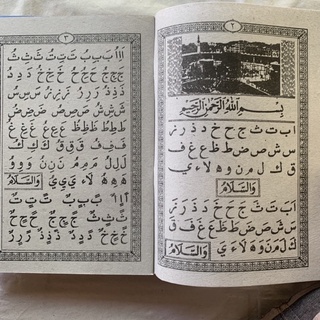 ٢
بِسْمِ اللّٰهِ الرَّحْمٰنِ الرَّحِيْمِ
ا ب ت ث ج ح خ د ذ ر ز
س ش ص ض ط ظ ع غ ف
ق ك ل م ن و ه لا ء ي
وَالسَّلَامُ
اَ بَ تَ ثَ جَ حَ خَ دَ ذَ رَ زَ
سَ شَ صَ ضَ طَ ظَ عَ غَ فَ قَ
كَ لَ مَ نَ وَ هَ لَا ءَ يَ وَالسَّلَامُ
٣
اَ اِ اُ بَ بِ بُ تَ تِ تُ ثَ ثِ ثُ
جَ جِ جُ حَ حِ حُ خَ خِ خُ دَ دِ دُ
ذَ ذِ ذُ رَ رِ رُ زَ زِ زُ سَ سِ سُ
شَ شِ شُ صَ صِ صُ ضَ ضِ ضُ
طَ طِ طُ ظَ ظِ ظُ عَ عِ عُ غَ غِ غُ
فَ فِ فُ قَ قِ قُ كَ كِ كُ
لَ لِ لُ مَ مِ مُ نَ نِ نُ وَ وِ وُ
هَ هِ هُ لَا ءَ يَ يِ يُ
وَالسَّلَامُ
اً اٍ اٌ بً بٍ بٌ تً تٍ تٌ
ثً ثٍ ثٌ جً جٍ جٌ حً حٍ حٌ
خً خٍ خٌ دً دٍ دٌ ذً ذٍ ذٌ رً رٍ رٌ